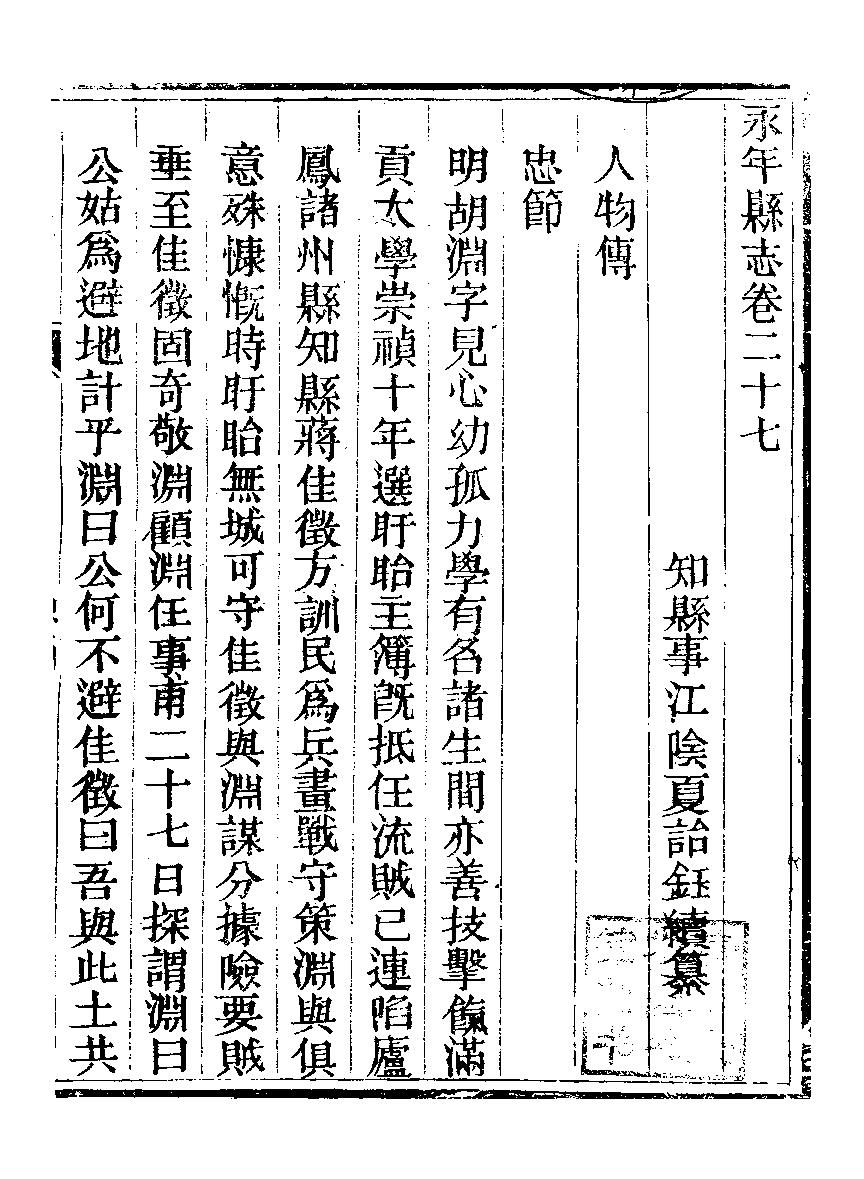 永年縣志卷二十七
知縣事江陰夏詒鈺續纂
人物傳
忠節
明胡淵字見心幼孤力學有名諸生間亦善技擊餼滿
貢太學崇禎十年選盱眙主簿旣抵任流賊已連陷廬
鳳諸州縣知縣蔣佳徵方訓民爲兵畫戰守策淵與俱
意殊慷慨時盱眙無城可守佳徵與淵謀分據險要賊
垂至佳徵固奇敬淵顧淵任事甫二十七日探謂淵曰
公姑爲避地計乎淵曰公何不避佳徵曰吾與此土共